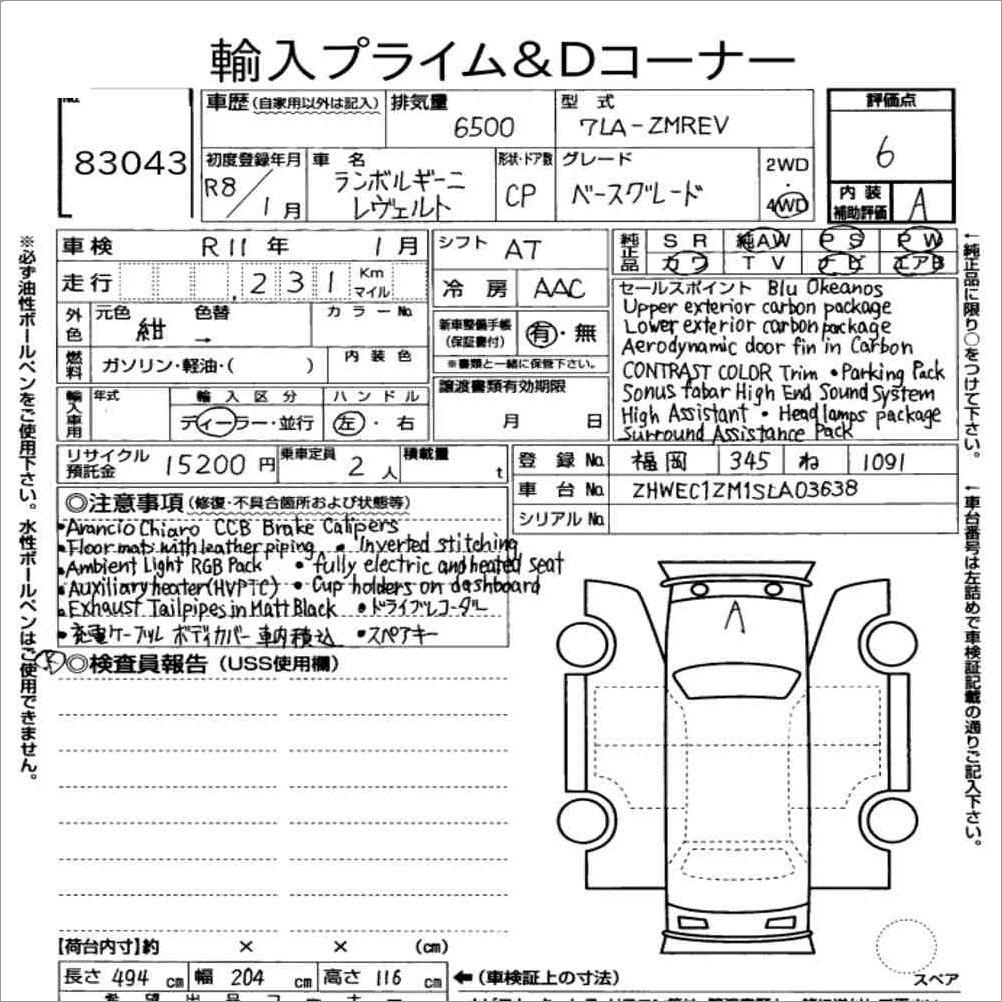 輸入プライム&Dコーナー
No.
83043
車歴(自家用以外は記入)
排気量
6500
型式
7LA-ZMREV
評価点
6
内装
補助評価
A
初度登録年月
R8/1月
車名
ランボルギーニ
レヴェルト
形状・ドア数
CP
グレード
ベースグレード
2WD
・
4WD
車検 R11年 1月
走行 ,231 Km
マイル
外色
元色 紺
色替 →
カラーNo.
燃料
ガソリン・軽油・( )
内装色
輸入車用
年式
輸入区分
ディーラー・並行
ハンドル
左・右
シフト AT
冷房 AAC
新車整備手帳
(保証書付)
有・無
※書類と一緒に保管下さい。
譲渡書類有効期限
月 日
純正品
SR 純AW PS PW
カワ TV ナビ エアB
セールスポイント Blu Okeanos
Upper exterior carbon package
Lower exterior carbon package
Aerodynamic door fin in Carbon
CONTRAST COLOR Trim ・Parking Pack
Sonus fabar High End Sound System
High Assistant ・Headlamps package
Surround Assistance Pack
リサイクル
預託金
15200円
乗車定員 2人
積載量 t
登録No. 福岡 345 ね 1091
車台No. ZHWEC1ZM1SLA03638
シリアルNo.
◎注意事項(修復・不具合箇所および状態等)
・Arancio Chiaro CCB Brake Calipers
・Floor mats with leather piping ・Inverted stitching
・Ambient Light RGB Pack ・fully electric and heated seat
・Auxiliary heater(HVPTC) ・Cup holders on dashboard
・Exhaust Tailpipes in Matt Black ・ドライブレコーダー
・充電ケーブル ボディカバー 車内積込 ・スペアキー
◎検査員報告(USS使用欄)
A
【荷台内寸】約 × × (cm)
長さ 494 cm 幅 204 cm 高さ 116 cm
←(車検証上の寸法)
スペア
※必ず油性ボールペンをご使用下さい。水性ボールペンはご使用できません。
←純正品に限り○をつけて下さい。
←車台番号は左詰めで車検証記載の通りご記入下さい。